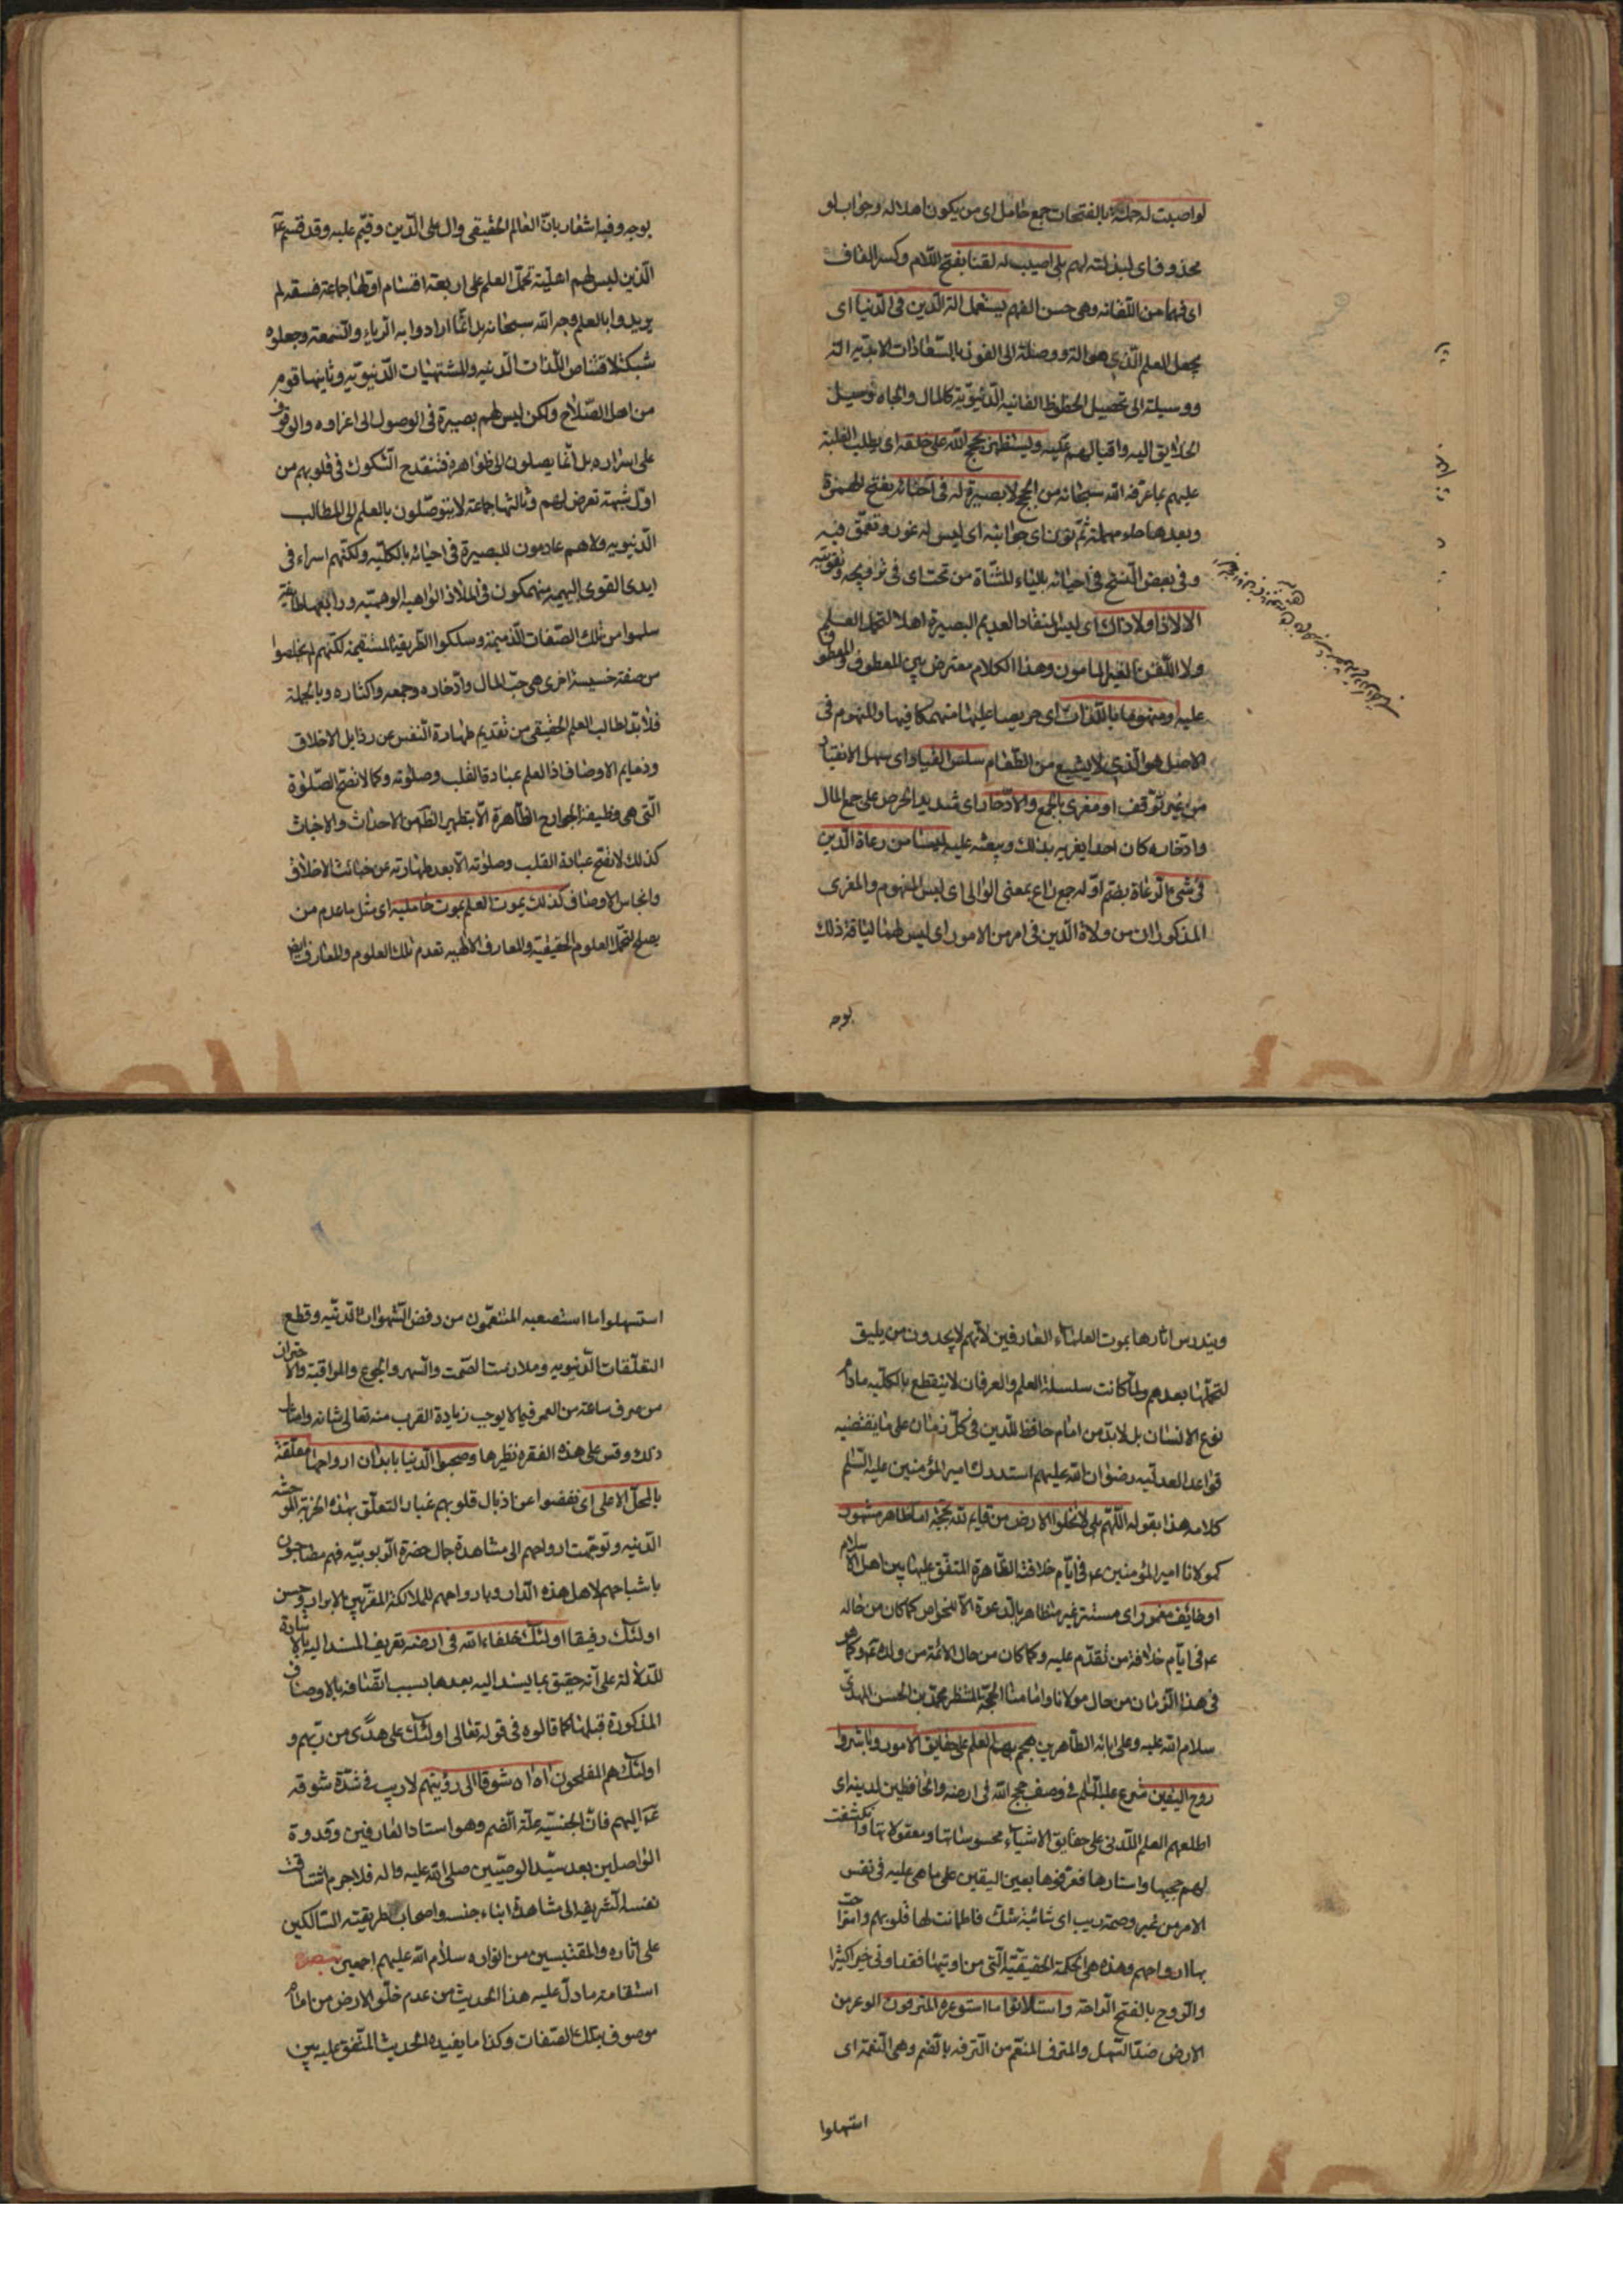 لو اصبت له حملة بالفتحات جمع حامل اى من يكون اهلا له وجواب لو
محذوف اى لبذلته لهم بلى اصيب له لقنا بفتح اللام وكسر القاف
اى فهما من اللقانة وهى حسن الفهم يستعمل آلة الدين فى الدنيا اى
يجعل العلم الذى هو آلة ووصلة الى الفوز بالسعادات الابدية آلة
ووسيلة الى تحصيل الحظوظ الفانية الدنيوية كالمال والجاه وتوسيل
الخلايق اليه واقبالهم عليه ويستظهر بحجج الله على خلقه اى يطلب الغلبة
عليهم بما عرفه الله سبحانه من الحجج لا بصيرة له فى احنائه بفتح الهمزة
وبعدها حاء مهملة ثم نون اى جوانبه اى ليس له غور وتعمق فيه
وفى بعض النسخ فى احيائه بالياء المثناة من تحت اى فى ترويجه وتقويته
الا لا ذا ولا ذاك اى ليس المنقاد العديم البصيرة اهلا لتحمل العلم
ولا اللقن الغير المامون وهذا الكلام معترض بين المعطوف والمعطوف
عليه او منهوما باللذات اى حريصا عليها منهمكا فيها والمنهوم فى
الاصل هو الذى لا يشبع من الطعام سلس القياد اى سهل الانقياد
من غير توقف او مغرى بالجمع والادخار اى شديد الحرص على جمع المال
وادخاره كان احدا يغريه بذلك ويبعثه عليه ليسا من رعاة الدين
فى شىء الرعاة بضم اوله جمع راع بمعنى الوالى اى ليس المنهوم والمغرى
المذكوران من ولاة الدين فى امر من الامور اى ليس لهما لياقة ذلك
بوجه
بوجه وفيه اشعار بان العالم الحقيقى وال على الدين وقيم عليه وقد قسم ع
الذين ليس لهم اهلية تحمل العلم على اربعة اقسام اولها جماعة فسقة لم
يريدوا بالعلم وجه الله سبحانه بل انما ارادوا به الرياء والسمعة وجعلوه
شبكة لاقتناص اللذات الدنية والمشتهيات الدنيوية وثانيها قوم
من اهل الصلاح ولكن ليس لهم بصيرة فى الوصول الى اغواره والوقوف
على اسراره بل انما يصلون الى ظواهره فتنقدح الشكوك فى قلوبهم من
اول شبهة تعرض لهم وثالثها جماعة لا يتوصلون بالعلم الى المطالب
الدنيوية ولا هم عادمون للبصيرة فى احيائه بالكلية ولكنهم اسراء فى
ايدى القوى البهيمية منهمكون فى الملاذ الواهية الوهمية ورابعها طائفة
سلموا من تلك الصفات الذميمة وسلكوا الطريقة المستقيمة لكنهم لم يخلصوا
من صفة خسيسة اخرى هى حب المال وادخاره وجمعه واكثاره وبالجملة
فلا بد لطالب العلم الحقيقى من تقديم طهارة النفس عن رذايل الاخلاق
وذمايم الاوصاف اذ العلم عبادة القلب وصلوته وكما لا تصح الصلوة
التى هى وظيفة الجوارح الظاهرة الا بتطهير الظاهر من الاحداث والاخباث
كذلك لا تصح عبادة القلب وصلوته الا بعد طهارته عن خبائث الاخلاق
وانجاس الاوصاف كذلك يموت العلم بموت حامليه اى مثل ما عدم من
يصلح لتحمل العلوم الحقيقية والمعارف الالهية تعدم تلك العلوم والمعارف ايضا
ويندرس اثارها بموت العلماء العارفين لانهم لا يجدون من يليق
لتحملها بعدهم ولما كانت سلسلة العلم والعرفان لا ينقطع بالكلية مادام
نوع الانسان بل لا بد من امام حافظ للدين فى كل زمان على ما يقتضيه
قواعد العدلية رضوان الله عليهم استدرك امير المؤمنين عليه السلم
كلامه هذا بقوله اللهم بلى لا تخلوا الارض من قايم لله بحجة اما ظاهر مشهور
كمولانا امير المؤمنين ع فى ايام خلافته الظاهرة المتفق عليها بين اهل الاسلام
او خائف مغمور اى مستتر غير متظاهر بالدعوة الا للخواص كما كان من حاله
ع فى ايام خلافة من تقدم عليه وكما كان من حال الائمة من ولده ع وكما هو
فى هذا الزمان من حال مولانا وامامنا الحجة المنتظر محمد بن الحسن المهدى
سلام الله عليه وعلى ابائه الطاهرين هجم بهم العلم على حقايق الامور وباشروا
روح اليقين شرع عليه السلم فى وصف حجج الله فى ارضه والحافظين لدينه اى
اطلعهم العلم اللدنى على حقايق الاشياء محسوساتها ومعقولاتها وانكشفت
لهم حجبها واستارها فعرفوها بعين اليقين على ما هى عليه فى نفس
الامر من غير وصمة ريب اى شائبة شك فاطمانت لها قلوبهم واستراحت
بها ارواحهم وهذه هى الحكمة الحقيقية التى من اوتيها فقد اوتى خيرا كثيرا
والروح بالفتح الراحة واستلانوا ما استوعره المترفون الوعر من
الارض ضد السهل والمترف المنعم من الترفه بالضم وهى النعمة اى
استسهلوا
استسهلوا ما استصعبه المتنعمون من رفض الشهوات الدنية وقطع
التعلقات الدنيوية وملازمة الصمت والسهر والجوع والمراقبة والاحتراز
من صرف ساعة من العمر فيما لا يوجب زيادة القرب منه تعالى شانه وامثال
ذلك وقس على هذه الفقرة نظيرها وصحبوا الدنيا بابدان ارواحها معلقة
بالمحل الاعلى اى نفضوا عن اذيال قلوبهم غبار التعلق بهذه الخربة الموحشة
الدنية وتوجهت ارواحهم الى مشاهدة جمال حضرة الربوبية فهم مصاحبون
باشباحهم لاهل هذه الدار وبارواحهم للملائكة المقربين الابرار وحسن
اولئك رفيقا اولئك خلفاء الله فى ارضه تعريف المسند اليه بالاشارة
للدلالة على انه حقيق بما يسند اليه بعدها بسبب اتصافه بالاوصاف
المذكورة قبلها كما قالوه فى قوله تعالى اولئك على هدى من ربهم و
اولئك هم المفلحون اه اه شوقا الى رؤيتهم لا ريب فى شدة شوقه
ع اليهم فان الجنسية علة الضم وهو استاد العارفين وقدوة
الواصلين بعد سيد الوصيين صلى الله عليه واله فلا جرم اشتاقت
نفسه الشريفة الى مشاهدة ابناء جنسه واصحاب طريقته السالكين
على اثاره والمقتبسين من انواره سلام الله عليهم اجمعين تبصرة
استقامة ما دل عليه هذا الحديث من عدم خلو الارض من امام
موصوف بتلك الصفات وكذا ما يفيده الحديث المتفق عليه بين